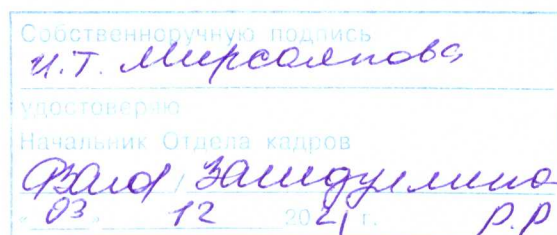 Собственноручную подпись
И.Т. Мирсаяпова
удостоверяю
Начальник Отдела кадров
/ Зашидуллина
" 03 " 12 2021 г. Р.Р